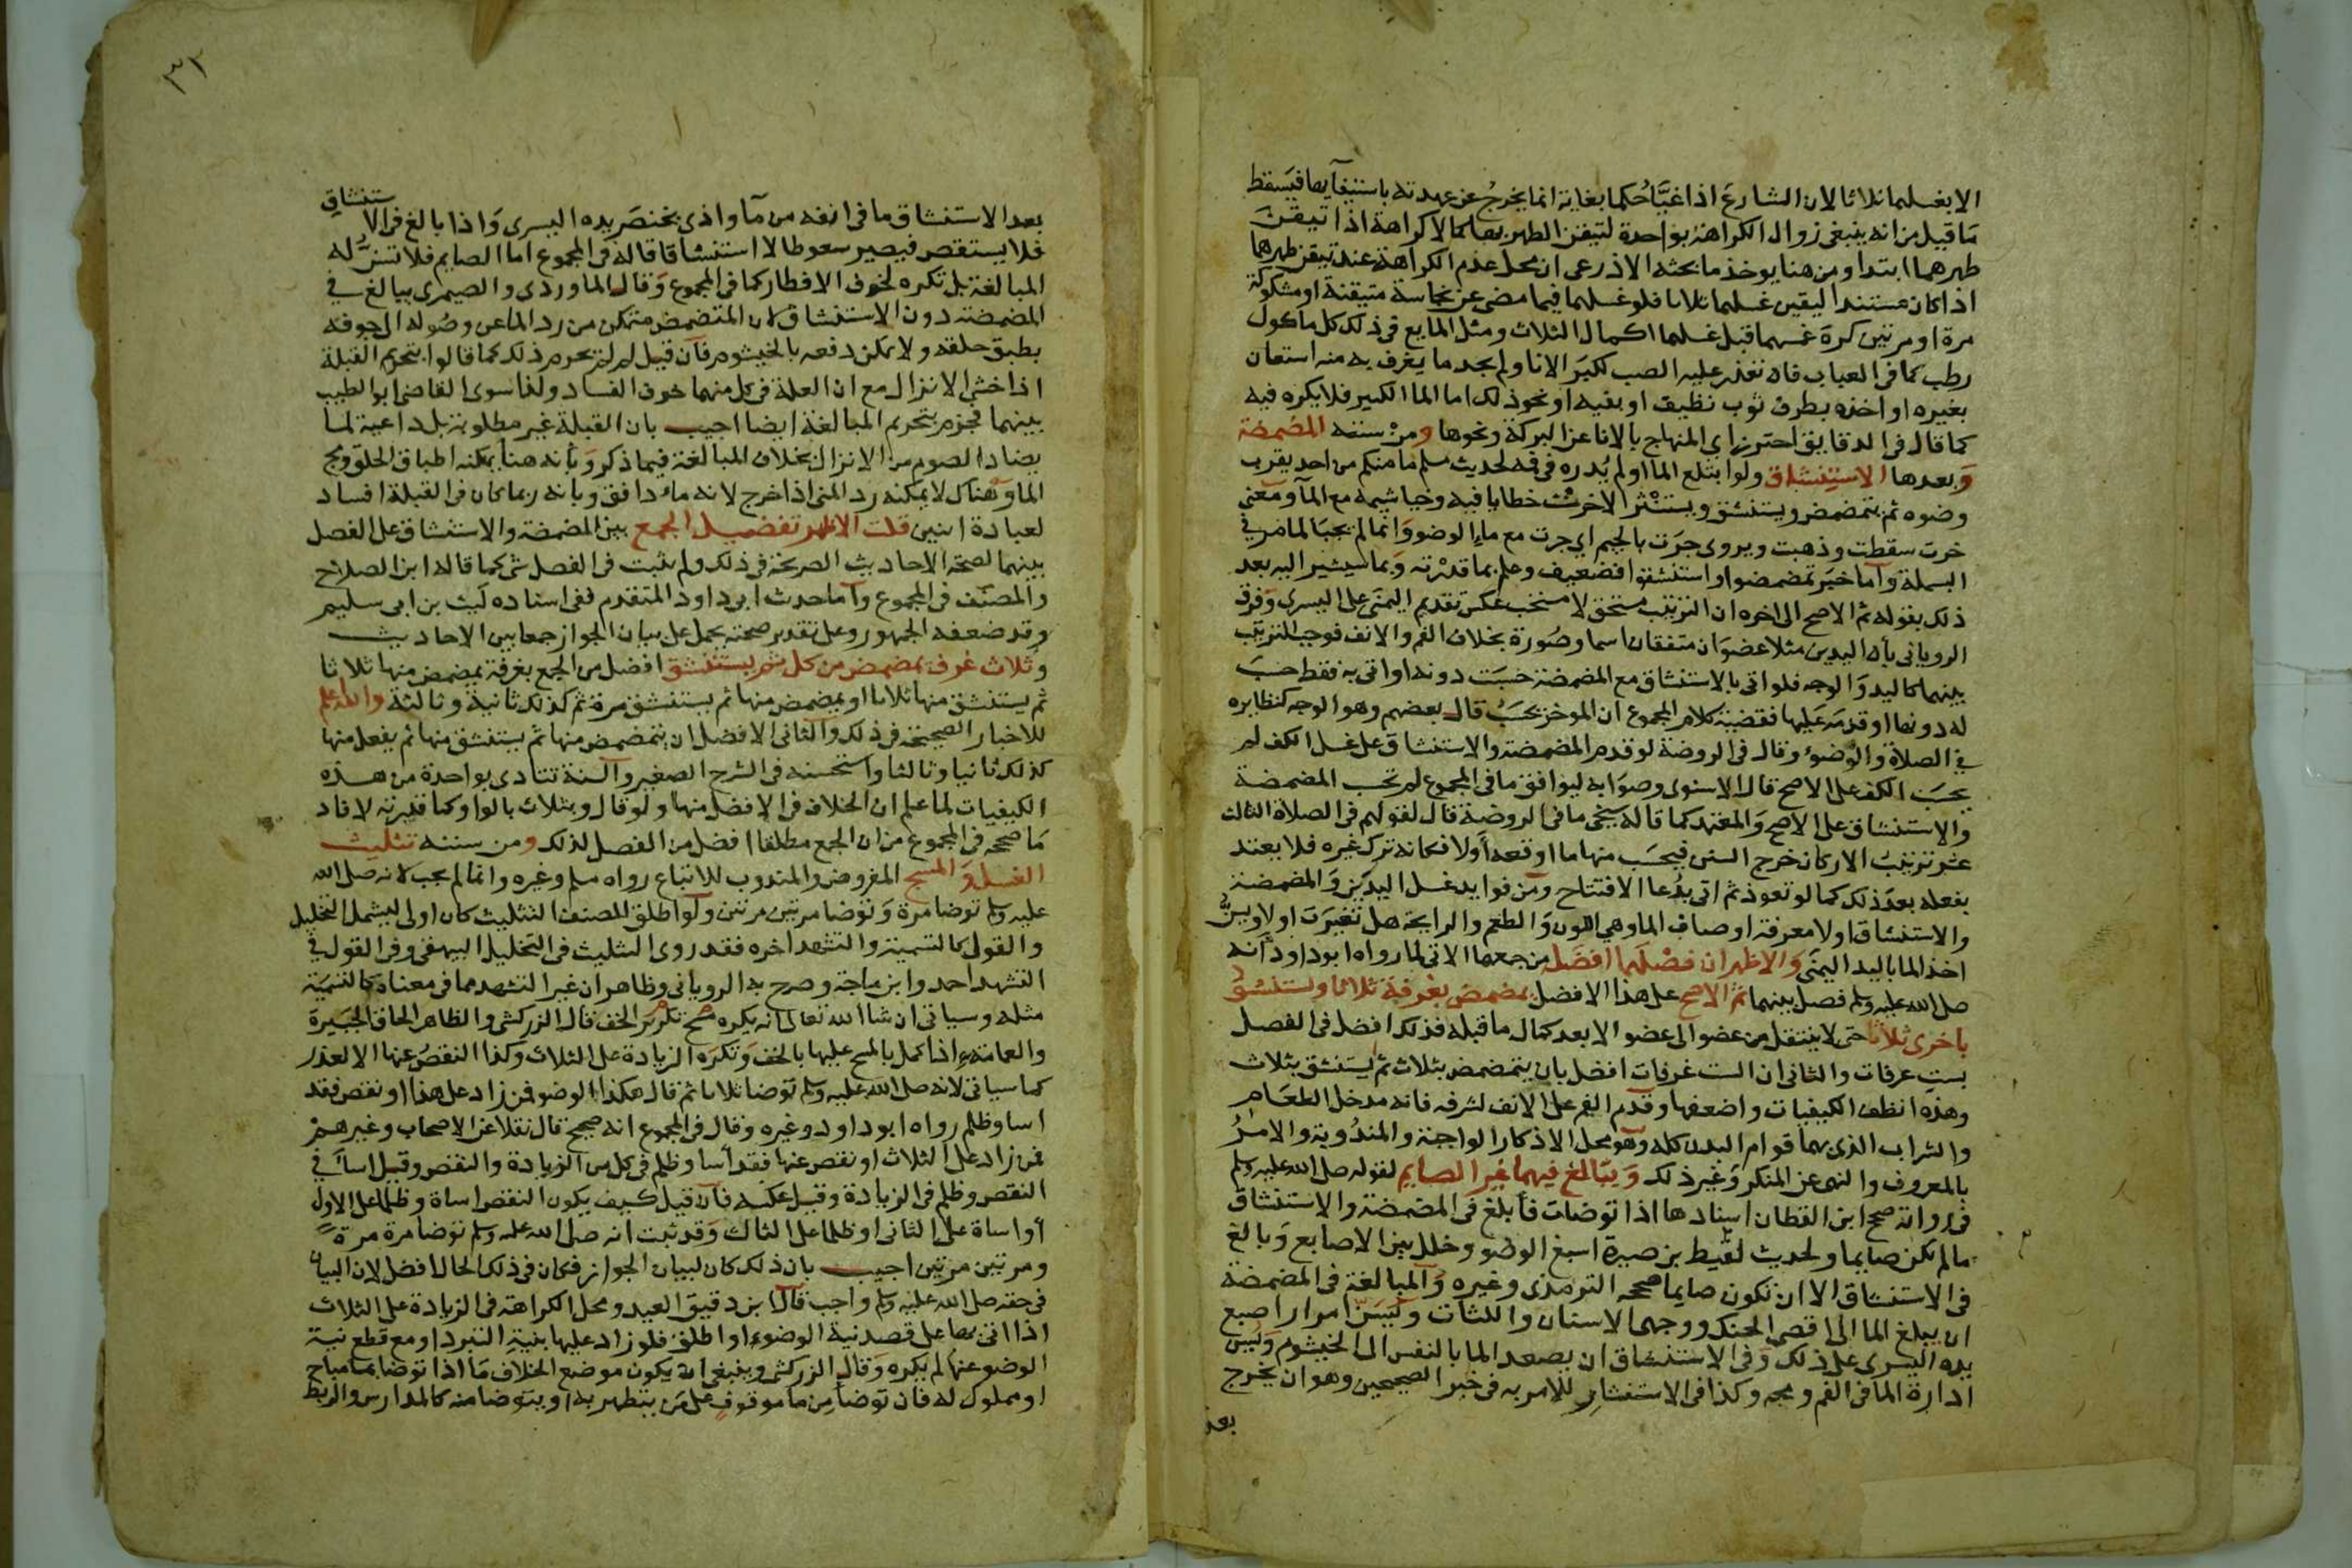 الا بغسلهما ثلاثا لان الشارع اذا غيّا حُكما بغاية انما يخرجُ عن عهدته باستيفآيها فيَسقط
مَا قيل من انه ينبغي زوال الكراهة بواحدة لتيقن الطهر بها كما لا كراهة اذا تيقن
طهرهما ابتدا ومن هنا يوخذ ما بحثه الاذرعي ان محل عدم الكراهة عند تيقن طهرهما
اذا كان مستند اليقين غسلهما ثلاثا فلو غسلهما فيما مضى عن نجاسة متيقنة او مشكوكة
مرة او مرتين كره غمسهما قبل غسلهما اكمال الثلاث ومثل المايع في ذلك كل ماكول
رطب كما في العباب فان تعذر عليه الصب لكبَر الانا ولم يجد ما يغرف به منه استعان
بغيره او اخذه بطرف ثوب نظيف او بفيه او نحو ذلك اما الما الكثير فلا يكره فيه
كما قال في الدقايق احترز اي المنهاج بالانا عن البركة ونحوها ومن سننه المضمضة
وَبعدها الاستنشاق ولو ابتلع الما او لم يُدره في فيه لحديث مسلم ما منكم من احد يقرب
وضوه ثم يتمضمض ويستنشق ويستنثر الا خرت خطايا فيه وخياشيمه مع المآ ومعنى
خرت سقطت وذهبت ويروى جرَت بالجيم اي جرت مع ماء الوضو وَانما لم يجبَا لما مر في
البسملة وآما خبَر تمضمضوا واستنشقوا فضعيف وعلم بما قدرته وَبما سيشير اليه بعد
ذلك بقوله ثم الاصح الى اخره ان الترتيب مستحق لا مستحب عكس تقديم اليمنى على اليسرى وَفرق
الروياني بأن اليدين مثلا عضوَان متفقان اسما وصُورة بخلاف الفم والانف فوجب الترتيب
بينهما كاليد وَالوجه فلو اتى بالاستنشاق مع المضمضة حسبَت دونه او اتى به فقط حسبَ
له دونها او قدمَه عَليها فقضية كلام المجموع ان الموخر يحسَبُ قال بعضهم وهو الوجه كنظايره
في الصلاة والوضوء وقال في الروضة لو قدم المضمضة والاستنشاق على غسل الكف لم
يحسَب الكف على الاصح قال الاسنوى وصوَابه ليوافق ما في المجموع لم تحسب المضمضة
والاستنشاق على الاصح وَالمعتمد كما قاله شيخي ما في الروضة قال لقولهم في الصلاة الثالث
عشر ترتيبُ الاركان خرج السنن فيحسَب منها ما اوقعه أولا فكانه ترك غيره فلا يعتد
بفعله بعدَ ذلك كما لو تعوذ ثم اتى بدُعا الافتتاح وَمن فوايد غسل اليدَين وَالمضمضة
والاستنشاق اولا معرفة اوصاف الما وهي اللون وَالطعم والرايحة هل تغيرَت اولا ويسنُّ
اخذ الما باليد اليمنى وَالاظهر ان فصْلهما افضَل من جمعهما الاتي لما رواه ابو داود انه
صلى الله عليه وسلم فصل بينهما ثم الاصح على هذا الافضل يمضمض بغرفة ثلاثا ويستنشق
باخرى ثلاثا حتى لا ينتقل من عضو الى عضو الا بعد كمال ما قبله فذلك افضل في الفصل
بست غرفات والثاني ان الست غرفات افضل بان يتمضمض بثلاث ثم يستنشق بثلاث
وهذه انظف الكيفيات واضعفها وقدّم الفم على الانف لشرفه فانه مدخل الطعَام
والشراب الذي بهما قوام البدن كله وهو محل الاذكار الواجبة والمندُوبة والامرُ
بالمعروف والنهي عن المنكر وَغير ذلك وَيبَالغ فيهما غير الصايم لقوله صلى الله عليه وسلم
في رواية صحح ابن القطان اسنادها اذا توضات فأبلغ في المضمضة والاستنشاق
ما لم تكن صايما ولحديث لقيط بن صبرة اسبغ الوضو وخلل بين الاصابع وَبالغ
في الاستنشاق الا ان تكون صايما صححه الترمذي وغيره وَالمبالغة في المضمضة
ان يبلغ الما الى اقصى الحنك ووجهي الاسنان واللثات وَيسَنّ امرار اصبع
يده اليسرى على ذلك وَفي الاستنشاق ان يصعد الما بالنفس الى الخيشوم وَيُسن
ادارة الما في الفم ومجه وكذا في الاستنشار للامر به في خبر الصحيحين وهو ان يخرج
بعد
٣١
بعد الاستنشاق ما في انفه من مآ واذى بخنصَر يده اليسرى وَاذا بالغ في الاستنشاق
فلا يستقصِ فيصير سعوطا لا استنشاقا قاله في المجموع اما الصايم فلا تسنُّ له
المبالغة بل تكره لخوف الافطار كما في المجموع وَقال الماوردى والصيمرى يبالغ في
المضمضة دون الاستنشاق لان المتمضمض متمكن من رد الما عن وصُوله الى جوفه
بطبق حلقه ولا يمكن دفعه بالخيشوم فآن قيل لم لم يحرم ذلك كما قالوا بتحريم القبلة
اذا خشي الانزال مع ان العلة في كل منهما خوف الفساد ولذا سوى القاضي ابو الطيب
بينهما فجزم بتحريم المبالغة ايضا اجيب بان القبلة غير مطلوبة بل داعية لما
يضاد الصوم من الانزال بخلاف المبالغة فيما ذكر وَبأنه هنا يمكنه اطباق الحلق ومج
الما وَهناك لا يمكنه رد المني اذا خرج لانه ماء دافق وبانه ربما كان في القبلة افساد
لعبادة اثنين قلت الاظهر تفضيل الجمع بين المضمضة والاستنشاق على الفصل
بينهما لصحة الاحاديث الصريحة في ذلك ولم يثبت في الفصل شي كما قاله ابن الصلاح
والمصنف في المجموع وَآما حدث ابي داود المتقدم ففي اسناده ليث بن ابي سليم
وقد ضعفه الجمهور وعلى تقدير صحته يحمل على بيان الجواز جمعا بين الاحاديث
وَثلاث غرف يمضمض من كل ثم يستنشق افضل من الجمع بغرفة يمضمض منها ثلاثا
ثم يستنشق منها ثلاثا او يمضمض منها ثم يستنشق مرة ثم كذلك ثانية وثالثة والله اعلم
للاخبار الصحيحة في ذلك وَالثاني الافضل ان يتمضمض منها ثم يستنشق منها ثم يفعل منها
كذلك ثانيا وثالثا واستحسنه في الشرح الصغير وآلسنة تتادى بواحدة من هذه
الكيفيات لما علم ان الخلاف في الافضل منها ولو قال وبثلاث بالواو كما قدرته لافاد
مَا صححه في المجموع من ان الجمع مطلقا افضل من الفصل لذلك ومن سننه تثليث
الغسل وَالمسح المفروض والمندوب للاتباع رواه مسلم وغيره وانما لم يجب لانه صلى الله
عليه وسلم توضا مرة وَتوضا مرتين مرتين ولو اطلق المصنف التثليث كان اولى ليشمل التخليل
والقول كالتسمية والتشهد اخره فقد روى التثليث في التخليل البيهقي وفي القول في
التشهد احمد وابن ماجة وصرح به الروياني وظاهر ان غير التشهد مما في معناه كالتسميَة
مثله وسياتي ان شا الله تعالى انه يكره تكرير مسح الخف قال الزركشي والظاهر الحاق الجَبيرة
والعمامة اذا كمل بالمسح عليها بالخف وَتكرَه الزيادة على الثلاث وكذا النقصُ عنها الا لعذر
كما سياتي لانه صلى الله عليه وسلم توضا ثلاثا ثم قال هكذا الوضو فمن زاد على هذا او نقص فقد
اسا وظلم رواه ابو داود وغيره وقال في المجموع انه صحيح قال نقلا عن الاصحاب وغيرهم
فمن زاد على الثلاث او نقص عنها فقد أسا وظلم في كل من الزيادة والنقص وقيل اسا في
النقص وظلم في الزيادة وقيل عكسه فآن قيل كيف يكون النقص اساة وظلما على الاول
أو اساة على الثاني او ظلما على الثالث وَقد ثبت انه صلى الله عليه وسلم توضا مرة مرة
ومرتين مرتين اجيب بان ذلك كان لبيان الجواز فكان في ذلك الحال افضل لان البيان
في حقه صلى الله عليه وسلم واجب قال ابن دقيق العيد ومحل الكراهة في الزيادة على الثلاث
اذا اتى بها على قصد نية الوضوء او اطلق فلو زاد عليها بنية التبرد او مع قطع نية
الوضو عنها لم يكره وَقال الزركشي وينبغي ان يكون موضع الخلاف مَا اذا توضا بما مباح
او مملوك له فان توضا من ما موقوف على مَن يتطهر به او يتوضا منه كالمدارس والربط